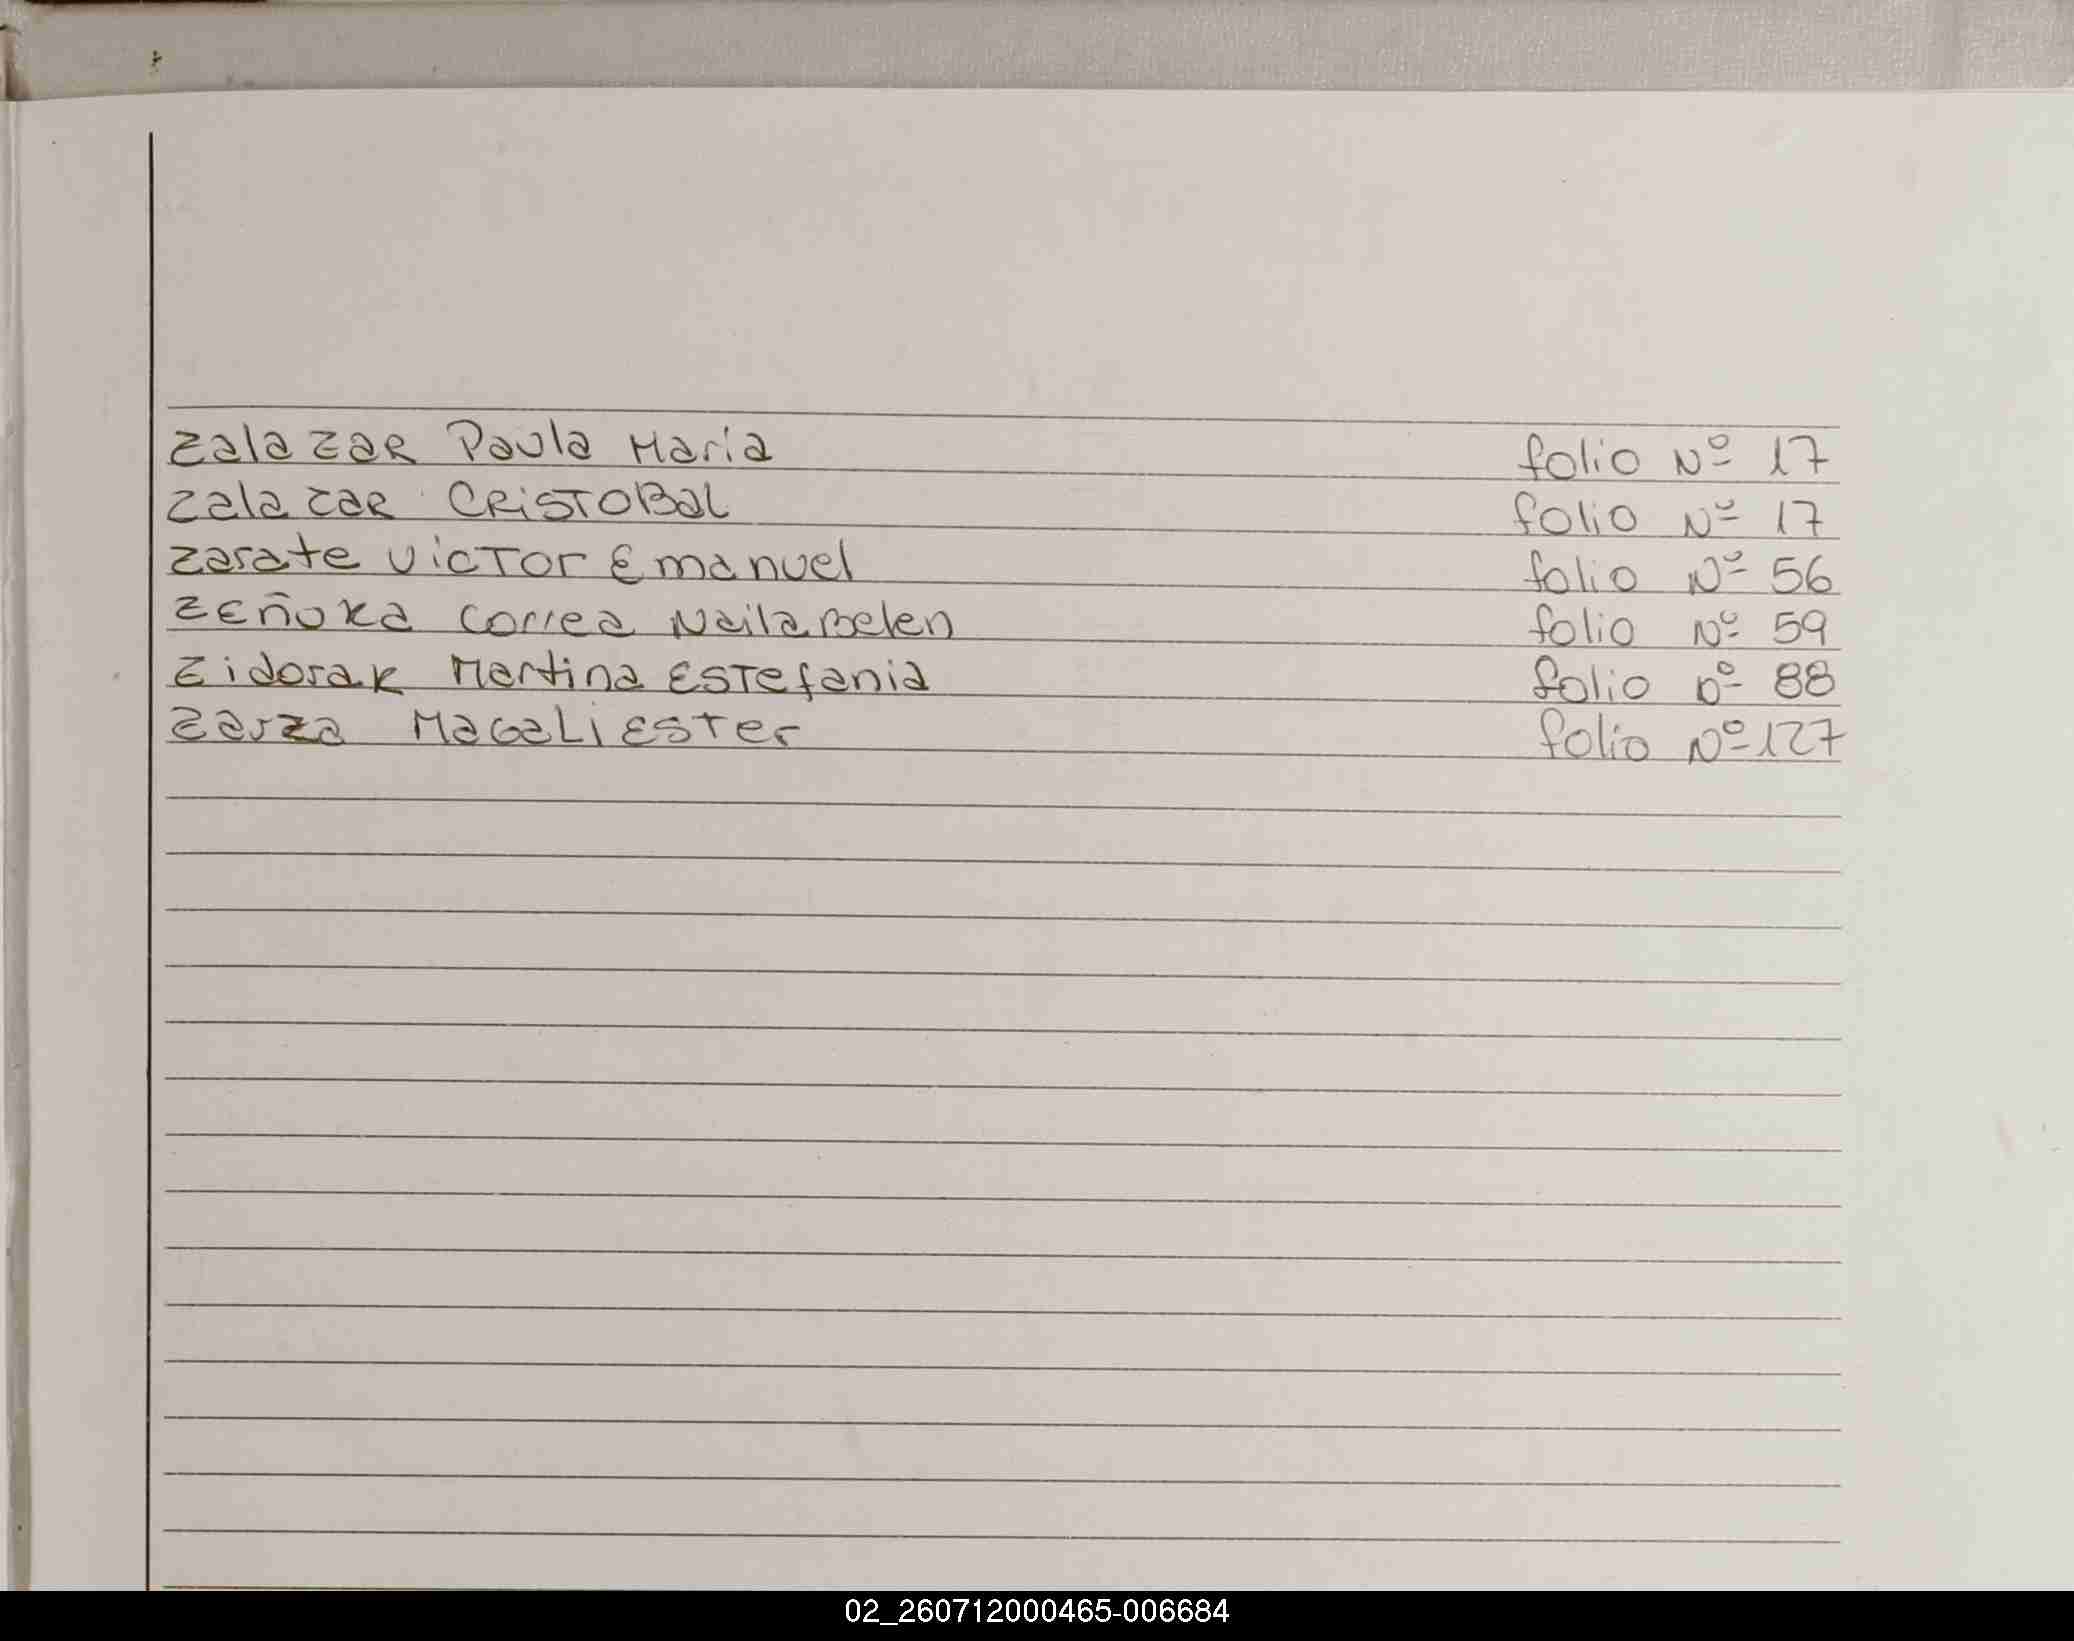 Zalazar Paula Maria folio Nº 17
Zalazar CRISTOBAL folio Nº 17
Zarate Victor Emanuel folio Nº 56
Zeñuka Correa Naila Belen folio Nº 59
Zidorak Martina Estefania folio nº 88
Zarza Magali Ester folio Nº 127
02_260712000465-006684